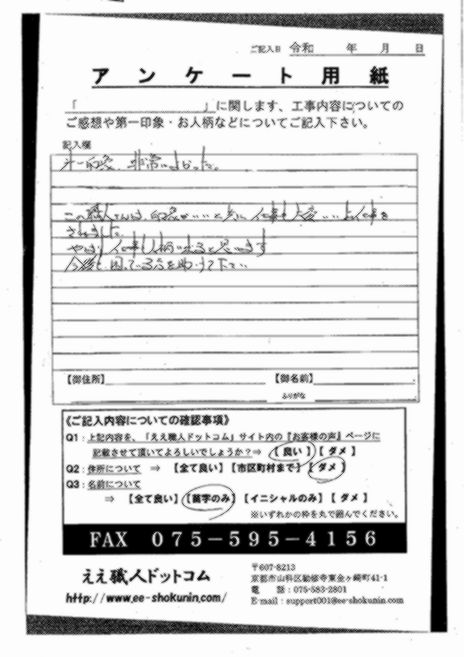 ご記入日 令和 年 月 日
アンケート用紙
「 」に関します、工事内容についての
ご感想や第一印象・お人柄などについてご記入下さい。
記入欄
第一印象、非常によかった。
この職人さんは、印象がいいと共に仕事も大変いい仕事を
されました。
やはり仕事も人柄が出ると思います
今後も困っている方を助けて下さい
【御住所】 【御名前】
ふりがな
《ご記入内容についての確認事項》
Q1：上記内容を、「ええ職人ドットコム」サイト内の『お客様の声』ページに
記載させて頂いてよろしいでしょうか？⇒ 【 良い 】【 ダメ 】
Q2：住所について ⇒ 【全て良い】【市区町村まで】【 ダメ 】
Q3：名前について
⇒ 【全て良い】【苗字のみ】【イニシャルのみ】【 ダメ 】
※いずれかの枠を丸で囲んでください。
FAX 075-595-4156
ええ職人ドットコム
http://www.ee-shokunin.com/
〒607-8213
京都市山科区勧修寺東金ヶ崎町41-1
電 話：075-583-2801
E-mail：support001@ee-shokunin.com